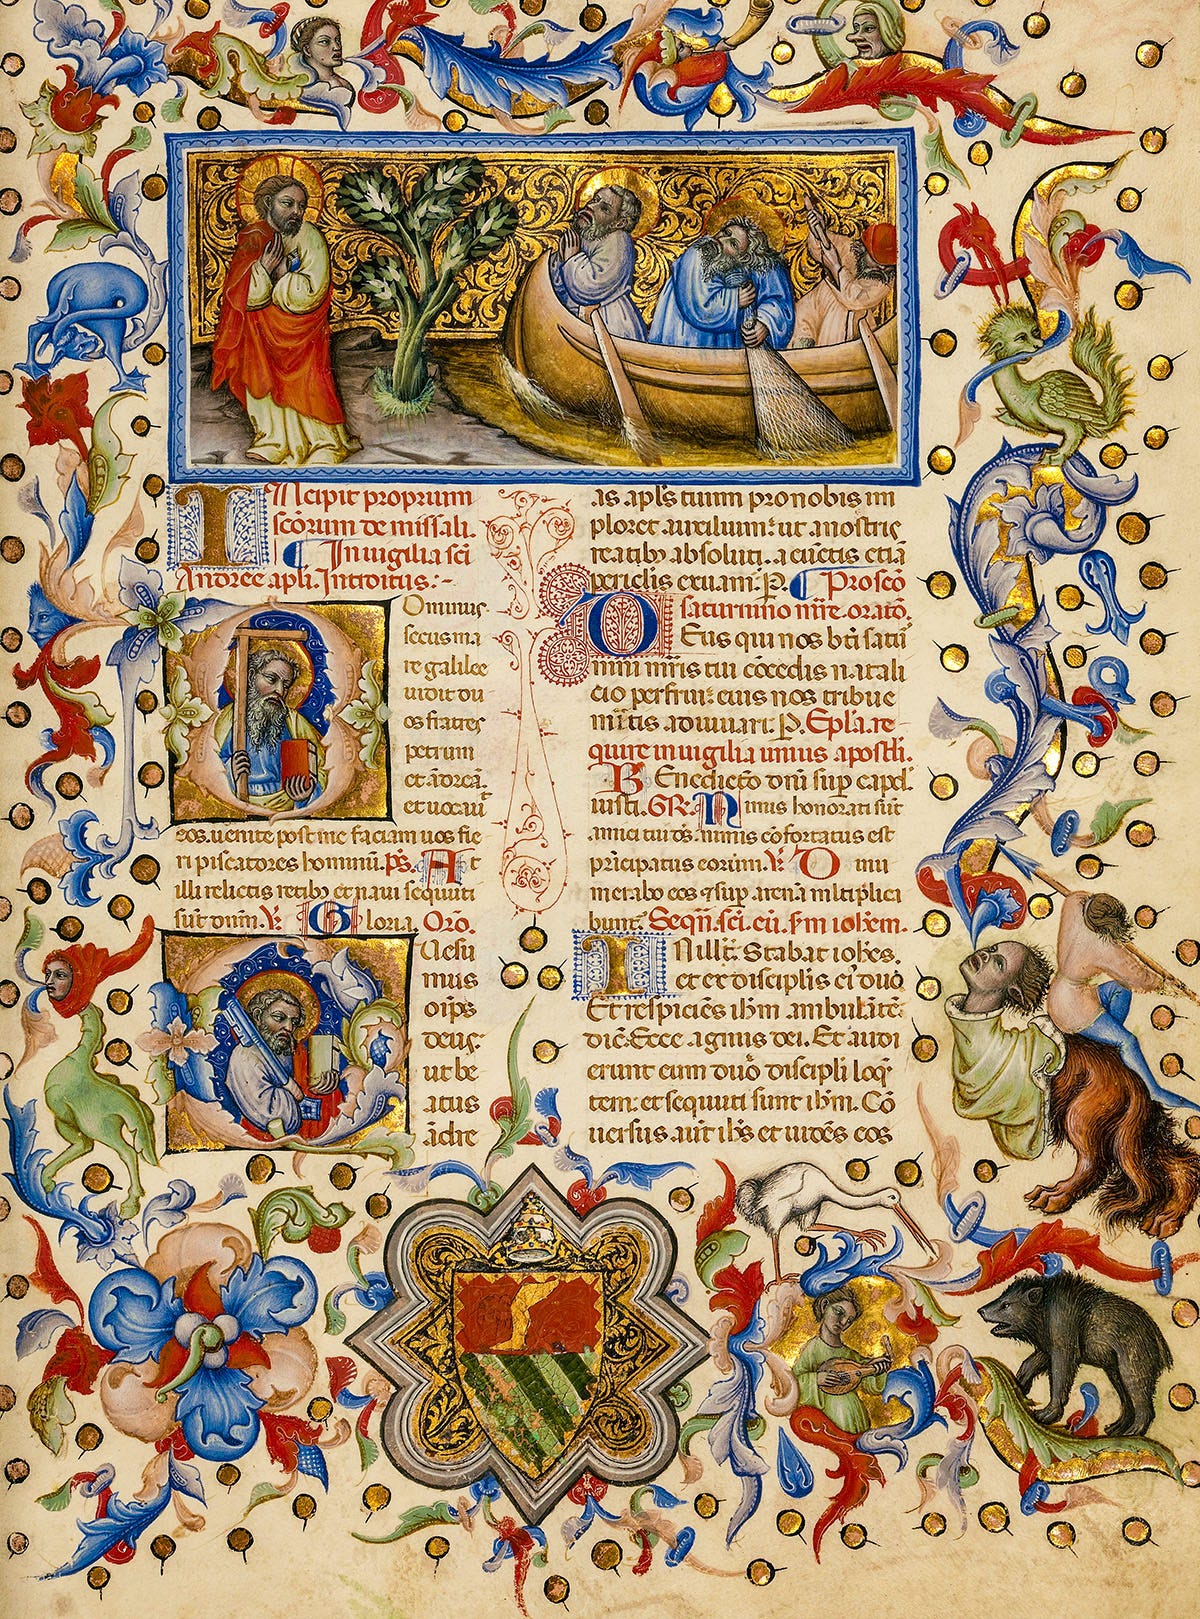 INcipit proprium
scõrum de missali.
In uigilia scī
Andree apłi. Introitus:~
Ominus
secus ma
re galilee
uidit du
os fratres
petrum
et ādreā.
et uocauit
eos. uenite post me faciam uos fie
ri piscatores hominū. pš. At
illi relictis retiby et naui sequuti
sūt dnm. V. Gloria. Orō.
Uesu
mus
oīps
deus:
ut be
atus
ādre
as apłs tuum pro nobis im
ploret auxilium: ut a nostris
reatiby absoluti. a cūctis etiā
periclis exuam. P. Pro scō
saturnino mīre. oratō.
Eus qui nos bti satū
nini mris tui cōcedis natali
cio perfrui: eius nos tribue
mītis adiuuari. P. Epła. re-
quire in uigilia unius apostłi.
BEnedictō dnī sup capđ
iusti. GR. Nimis honorati sūt
amici tui dš. nimis cōfortatus est
prīcipatus eorum. V. Dinu
merabo eos et sup arenā mltiplica
bunt. Seqñ. scī. eū. sm iohem.
IN illt. Stabat iohes.
et ex discipłis eī duo
Et respiciēs ihm ambulātē.
dic. Ecce agnus dei. Et audi
erunt eum duo discipłi loq
tem: et sequuti sunt ihm. Cō
uersus aut ihs et uidēs eos